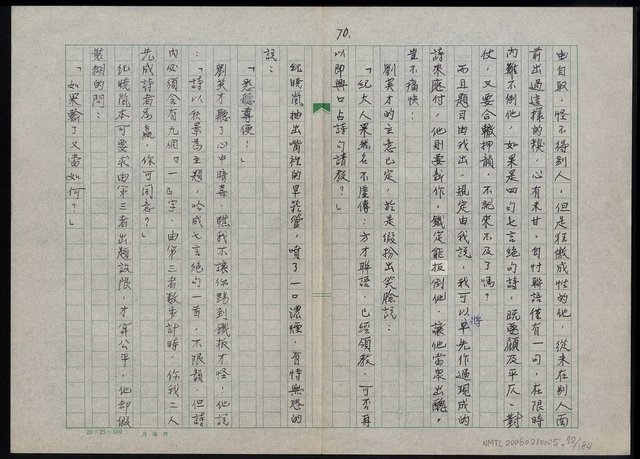 70.
由自取，怪不得別人，但是狂傲成性的他，從未在別人面
前出過這樣的糗，心有未甘，自忖聯語僅有一句，在限時
內難不倒他，如果是四句七言絕句詩，既要顧及平仄、對
仗，又要合轍押韻，不就來不及了嗎？
而且題目由我出，規定由我說，我可以事先將作過現成的
詩來應付，他則要新作，鐵定能扳倒他，讓他當眾出醜，
豈不痛快：
劉英才的主意已定，於是假扮出笑臉說：
「紀大人果然名不虛傳；方才聯語，已經領教，可否再
以即興口占詩句請教？」
紀曉嵐抽出嘴裡的旱菸管，噴了一口濃煙，有恃無恐的
說：
「悉聽尊便！」
劉英才聽了心中暗喜，瞧我不讓你踢到鐵板才怪；他說
：「詩以秋景為主題，吟成七言絕句一首，不限韻，但詩
內必須含有九個『一』字，由第三者數步計時，你我二人
先成詩者為贏，你可同意？」
紀曉嵐本可要求由第三者出題設限，才算公平，他卻假
裝糊的問：
「如果輸了又當如何？」
20×25=500
NMTL20060210005.72/184